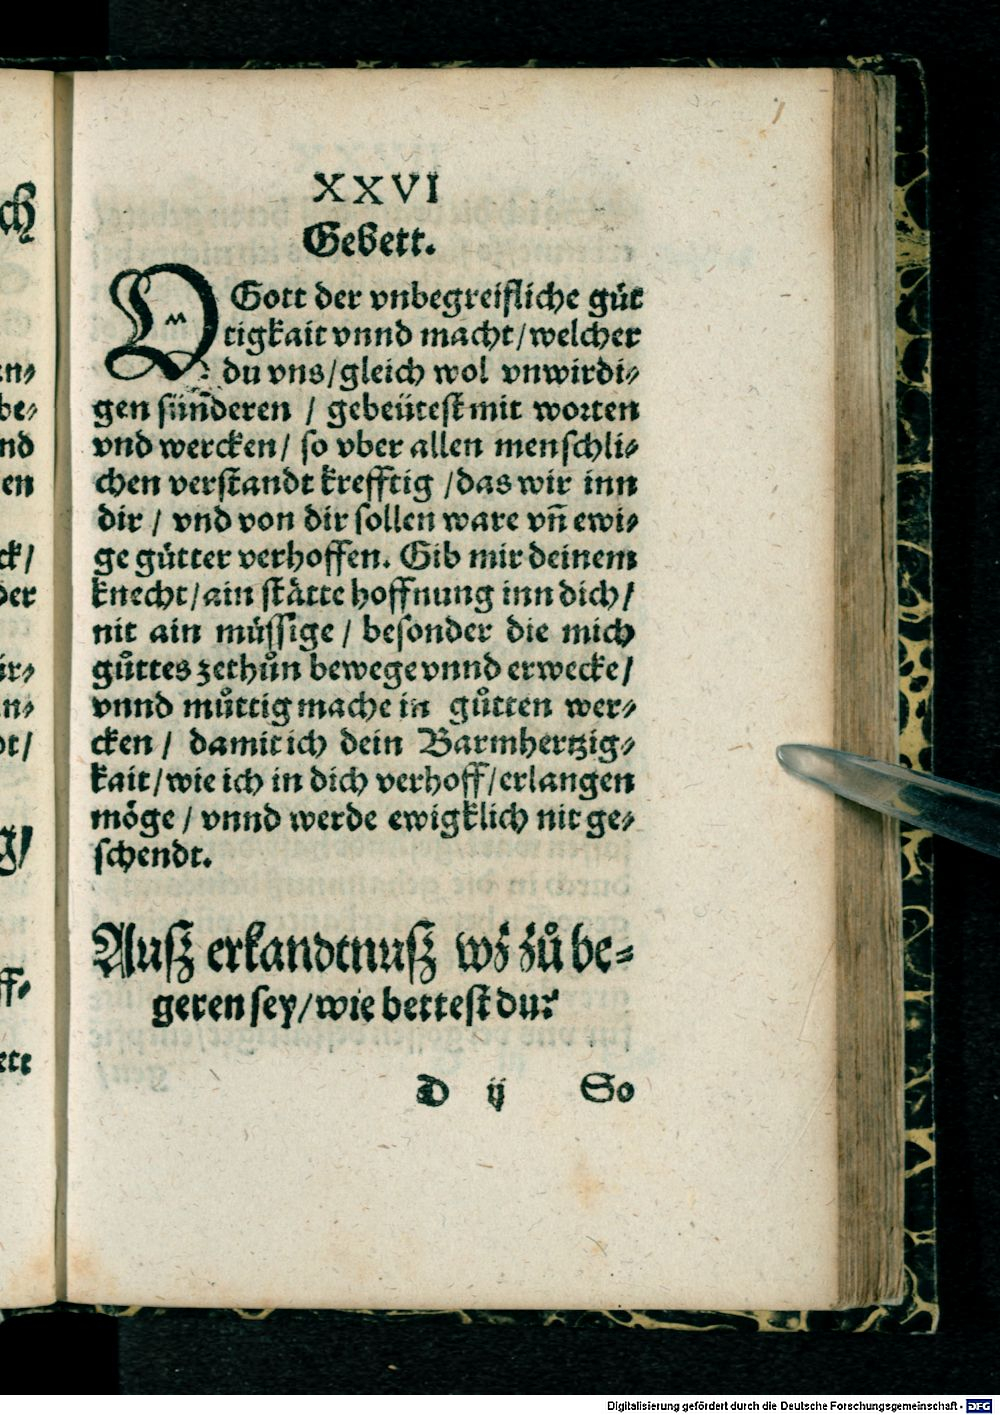 XXVI
Gebett.
O Gott der vnbegreifliche güt
tigkait vnnd macht/welcher
du vns/gleich wol vnwirdi⸗
gen sünderen / gebeütest mit worten
vnd wercken/ so vber allen menschli⸗
chen verstandt krefftig /das wir inn
dir / vnd von dir sollen ware vn̄ ewi⸗
ge gütter verhoffen. Gib mir deinem
knecht/ain stätte hoffnung inn dich/
nit ain müssige / besonder die mich
gůttes zethůn bewege vnnd erwecke/
vnnd můttig mache in gůtten wer⸗
cken / damit ich dein Barmhertzig⸗
kait/wie ich in dich verhoff/erlangen
möge / vnnd werde ewigklich nit ge⸗
schendt.
Ausz erkandtnusz wz zů be⸗
geren sey/wie bettest du?
D ij So
Digitalisierung gefördert durch die Deutsche Forschungsgemeinschaft - DFG